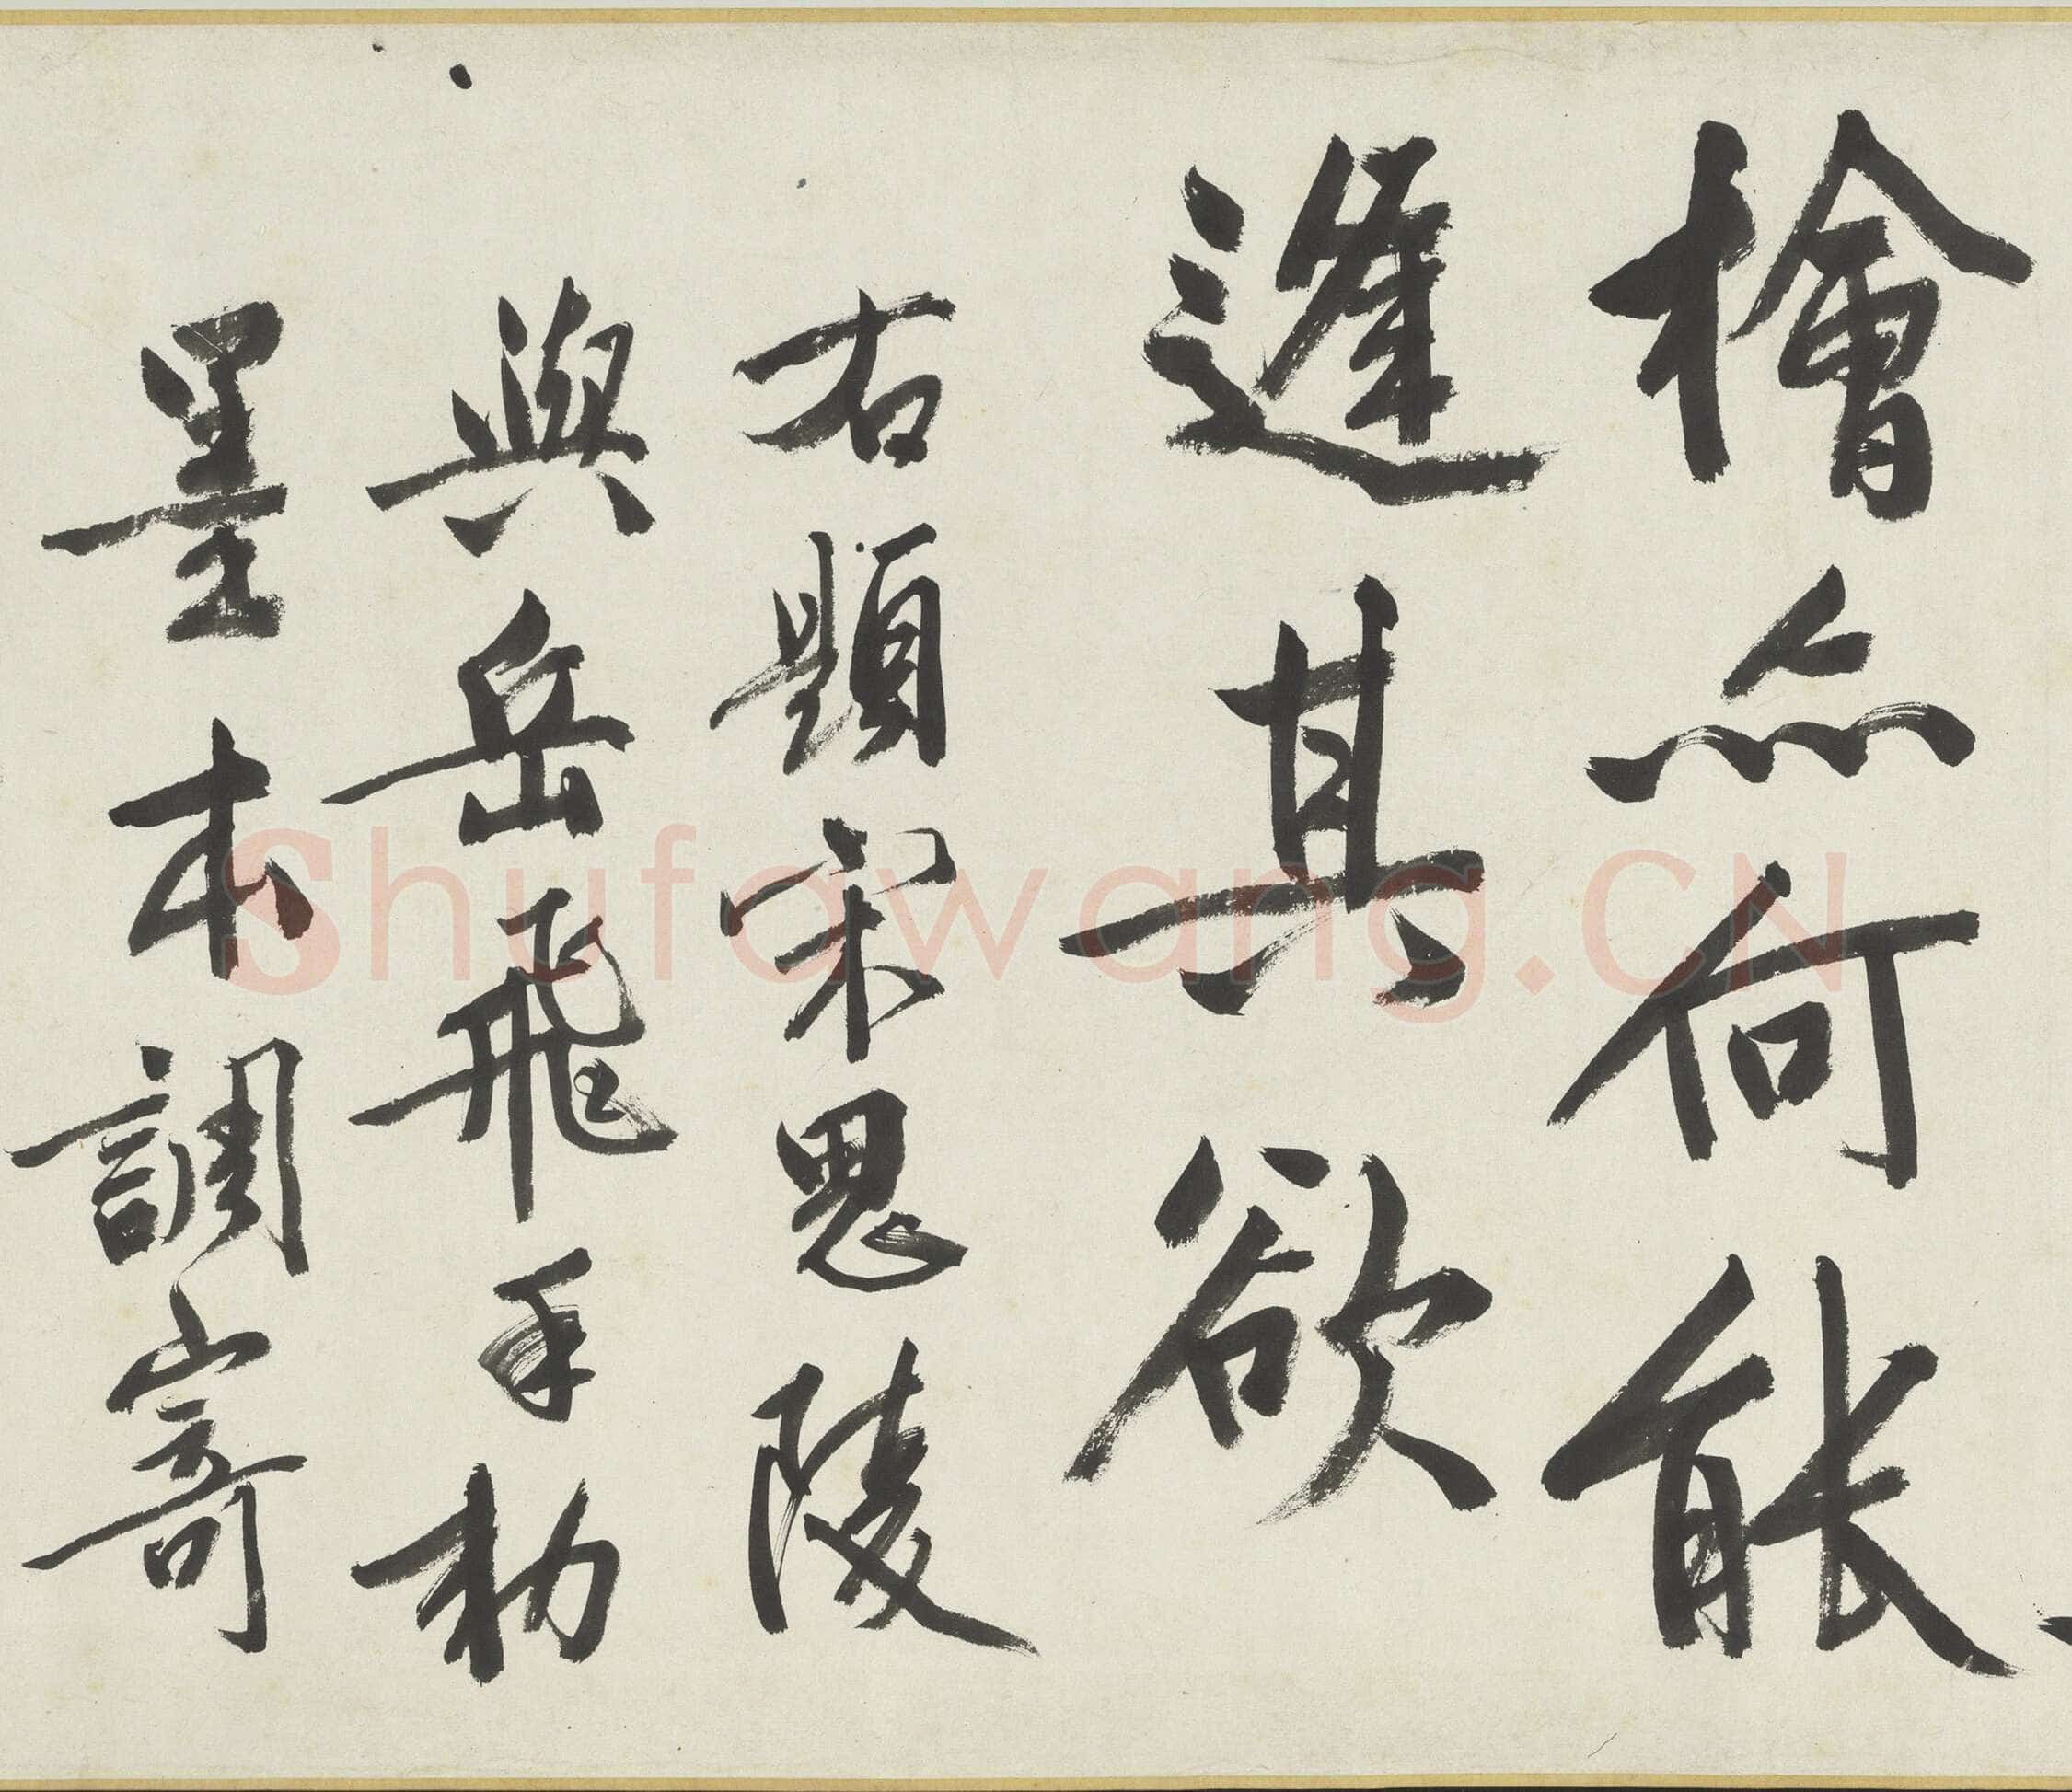 檜亦何能
逢其欲
右題宋思陵
與岳飛手敕
墨本調寄
Shufawang.CN